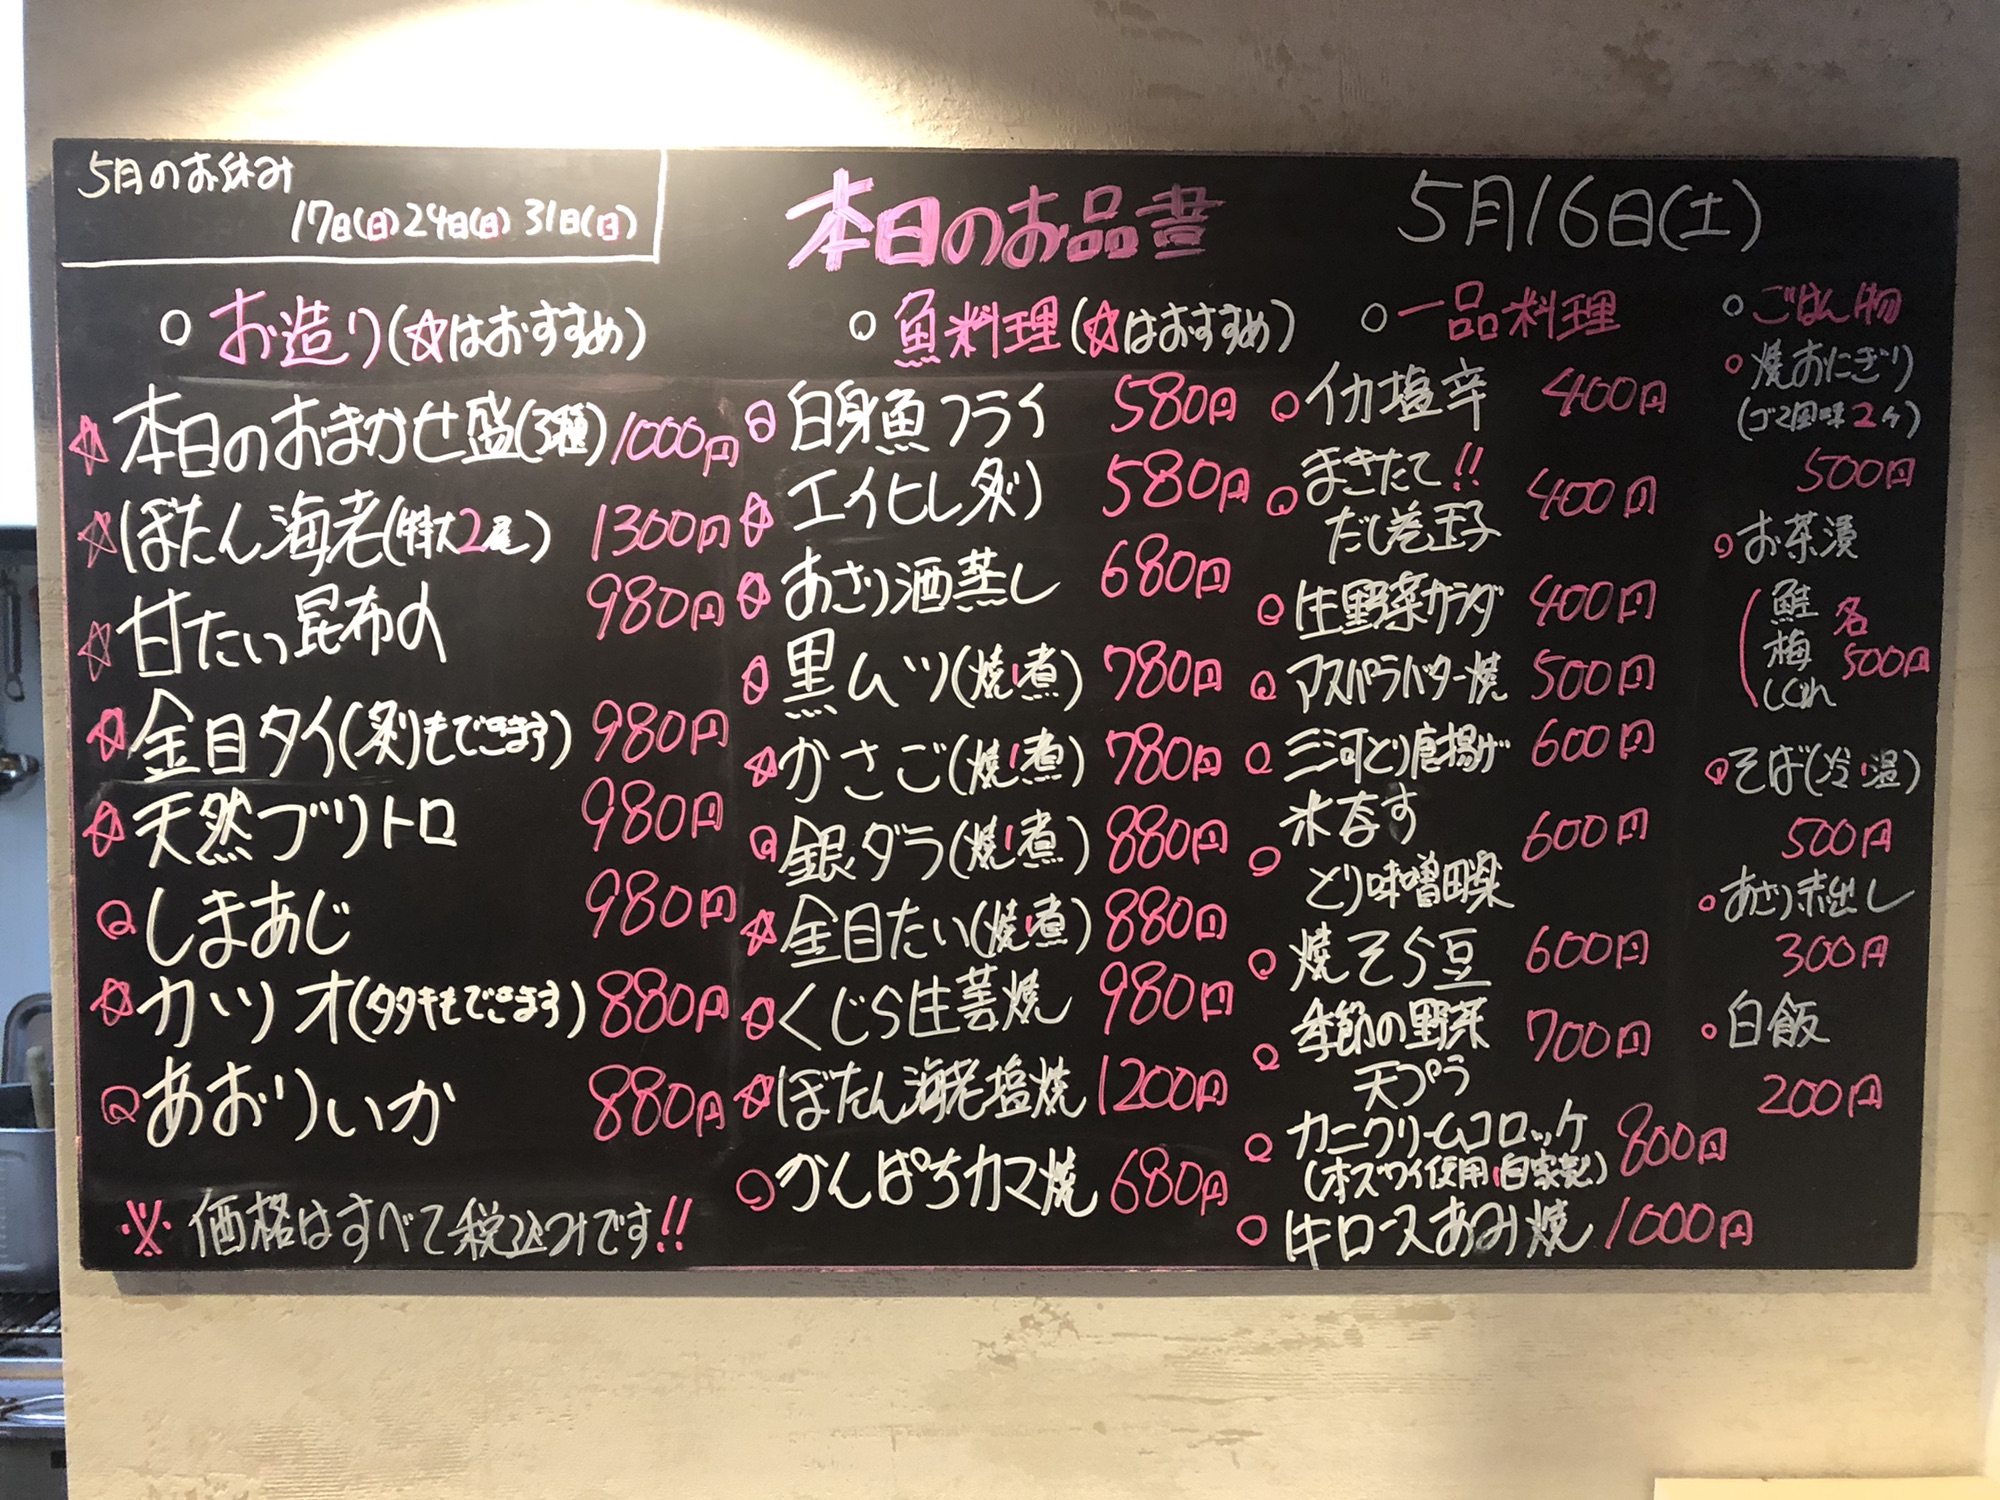 5月のお休み
17日(日)24日(日)31日(日)
本日のお品書
5月16日(土)
○お造り(☆はおすすめ)
☆本日のおまかせ盛(3種)1000円
☆ぼたん海老(特大2尾)1300円
☆甘たい昆布〆980円
☆金目タイ(炙りもできます)980円
☆天然ブリトロ980円
○しまあじ980円
☆カツオ(タタキもできます)880円
○あおりいか880円
※価格はすべて税込みです!!
○魚料理(☆はおすすめ)
○白身魚フライ580円
☆エイヒレ炙り580円
☆あさり酒蒸し680円
☆黒ムツ(焼・煮)780円
☆かさご(焼・煮)780円
○銀ダラ(焼・煮)880円
☆金目たい(焼・煮)880円
☆くじら生姜焼980円
☆ぼたん海老塩焼1200円
○かんぱちカマ焼680円
○一品料理
○イカ塩辛400円
○まきたて!!
だし巻玉子400円
○生野菜サラダ400円
○アスパラバター焼500円
○三河とり唐揚げ600円
○米なす
とり味噌田楽600円
○焼そら豆600円
○季節の野菜
天プラ700円
○カニクリームコロッケ800円
(本ズワイ使用・自家製)
○牛ロースあみ焼1000円
○ごはん物
○焼おにぎり
(ゴマ風味2ケ)
500円
○お茶漬
鮭
梅
しぐれ
各500円
○そば(冷・温)
500円
○あさり赤出し
300円
○白飯
200円